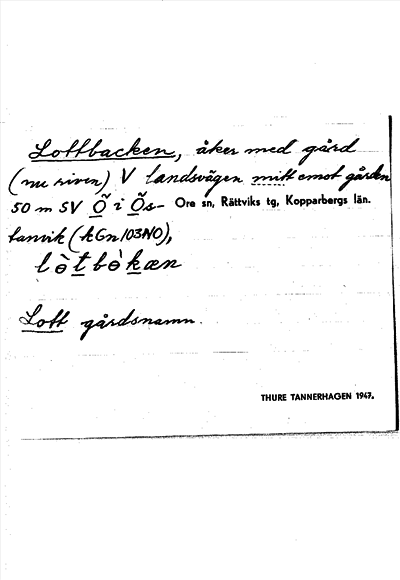 Lottbacken, åker med gård
(nu riven) V landsvägen mitt emot gården
50 m SV Õ i Õs- Ore sn, Rättviks tg, Kopparbergs län.
tanvik (kGn 103NO),
Lott gårdsnamn.
THURE TANNERHAGEN 1947.